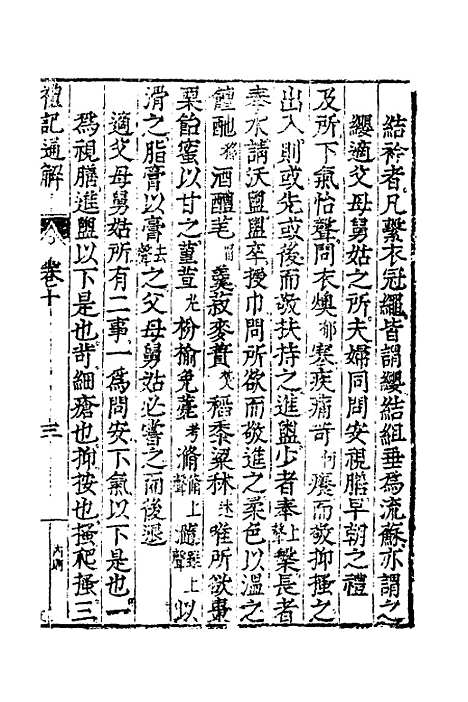 結衿者凡繫衣冠繩皆謂纓結組垂爲流蘇亦謂之
纓適父母舅姑之所夫婦同問安視膳早朝之禮
及所下氣怡聲問衣燠郁寒疾痛苛何癢而敬抑搔之
出入則或先或後而敬扶持之進盥少者奉上聲槃長者
奉水請沃盥盥卒授巾問所欲而敬進之柔色以溫之
饘酏移酒醴芼冒羹菽麥蕡焚稻黍粱秫述唯所欲棗
栗飴蜜以甘之菫荁丸枌榆免薧考滫脩上聲瀡雖上聲以
滑之脂膏以膏去聲之父母舅姑必嘗之而後退
適父母舅姑所有二事一爲問安下氣以下是也一
爲視膳進盥以下是也苛細瘡也抑按也搔爬搔三
禮記通解
卷十
三
內則